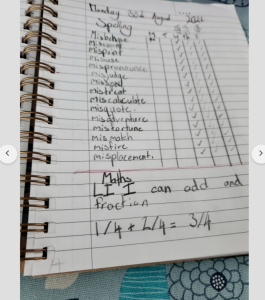 Monday 30th August 2021
Spelling
Misbehave
Misprint
misuse
mispronounce
misjudge
mistreat
miscalculate
misquote.
misadventure
misfortune
mismatch
misfire
misplacement.
Maths
LI I can add and
fraction
1/4 + 2/4 = 3/4